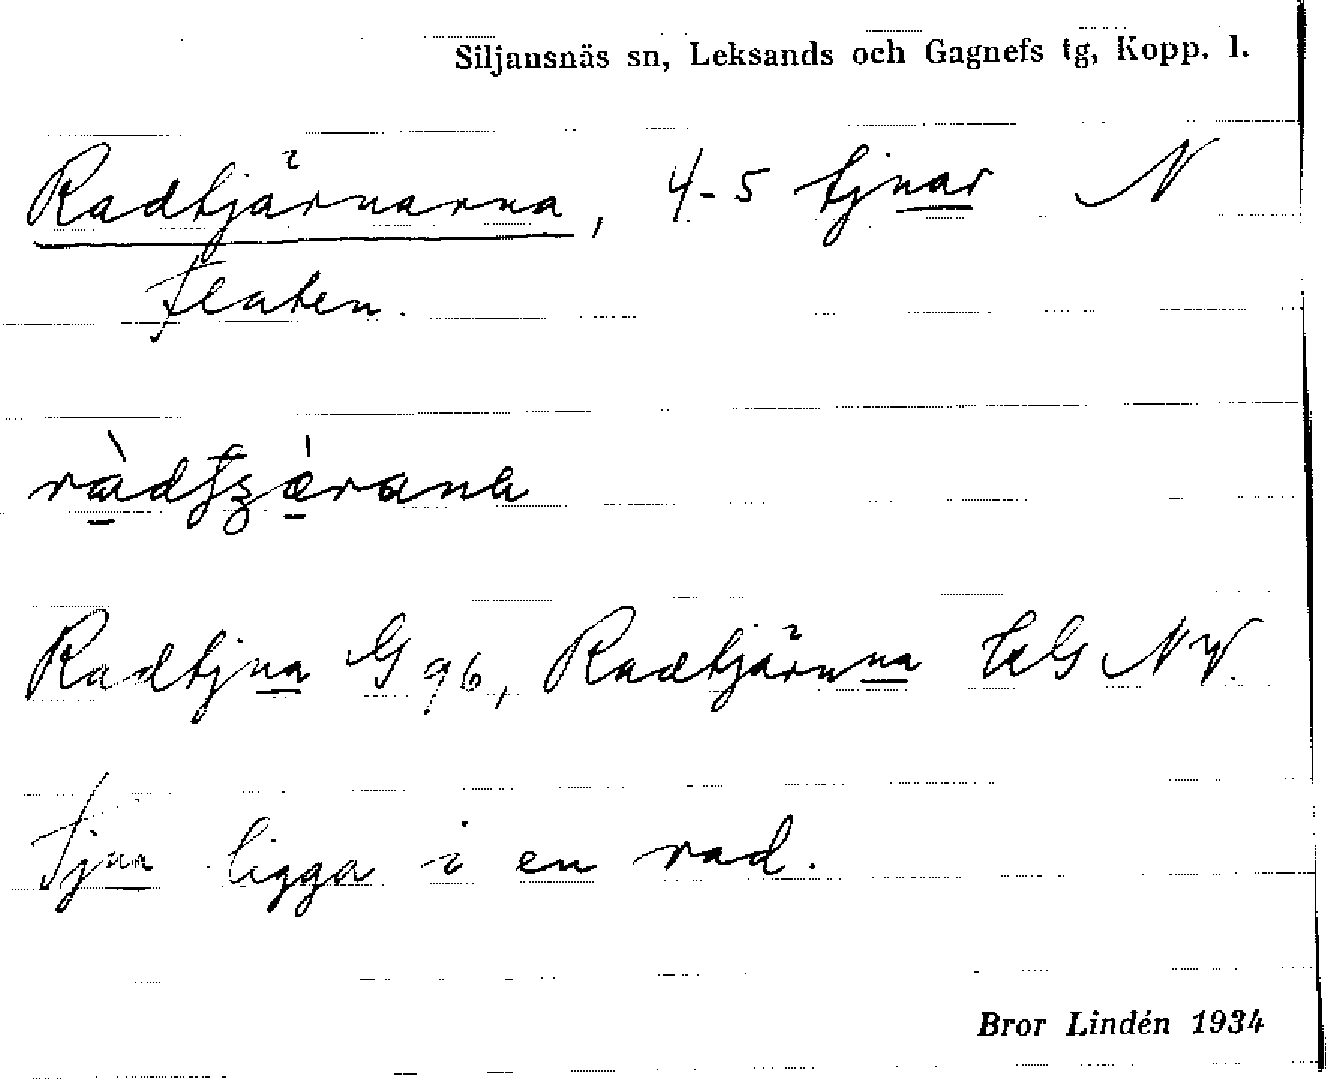 Siljansnäs sn, Leksands och Gagnefs tg, Kopp. l.
Radtjärnarna, 4-5 tjnar N
Flaten.
Radtjna G 96, Radtjärnna LLG NV.
tjnar ligga i en rad.
Bror Lindén 1934